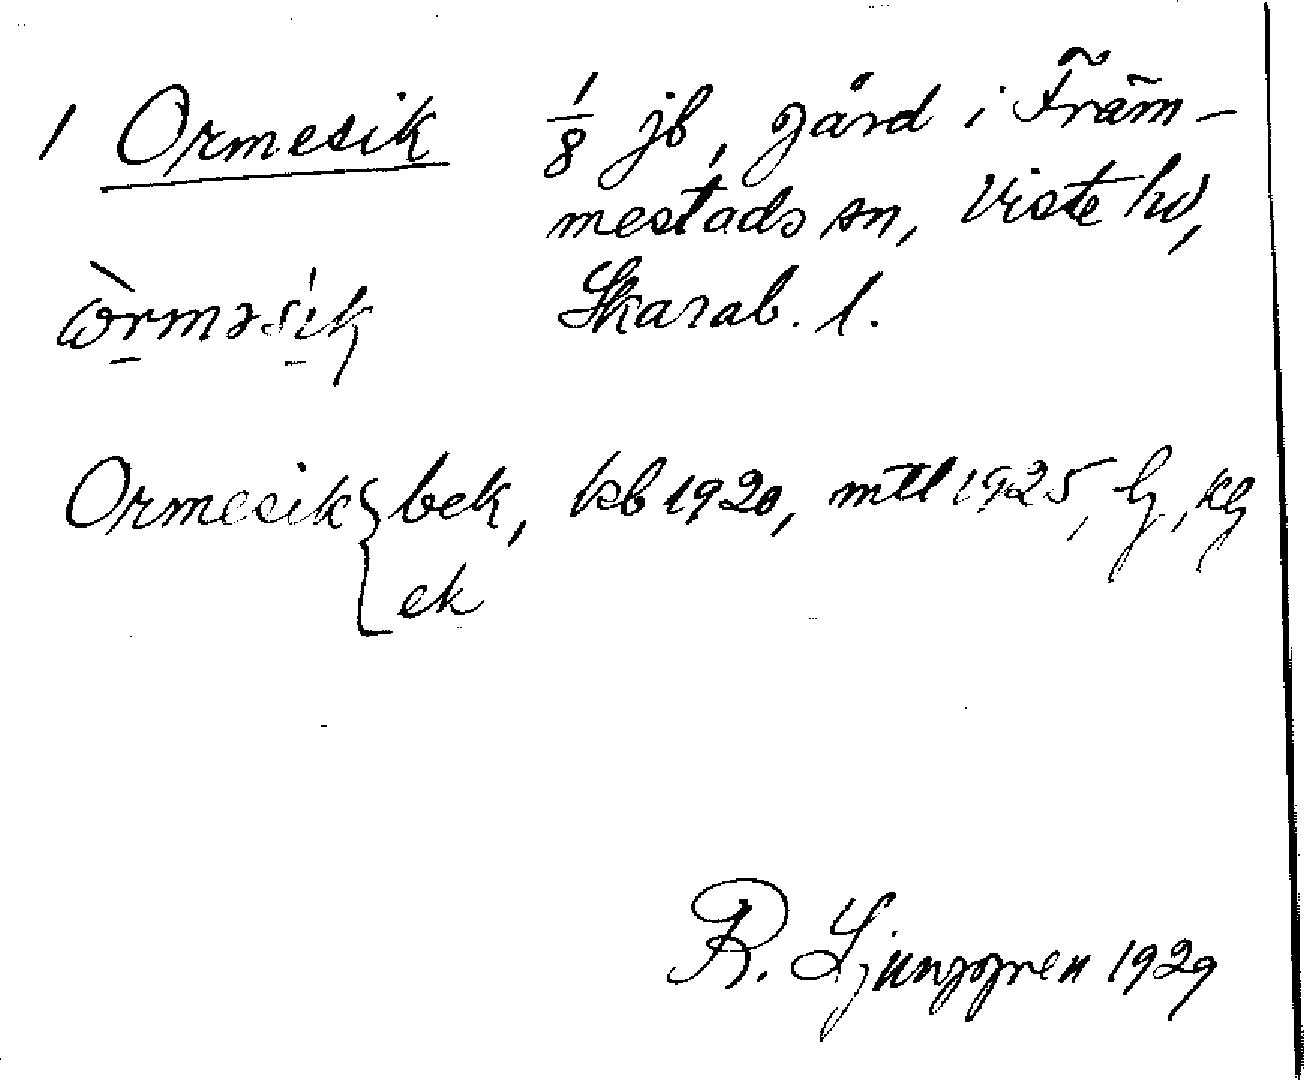 1 Ormesik 1/8 jb, gård i Främ-
mestads sn, Viste hd,
Skarab. l.
Ormesik { bek, kb 1920, mtl 1925, G, kg
ek
R. Ljunggren 1929